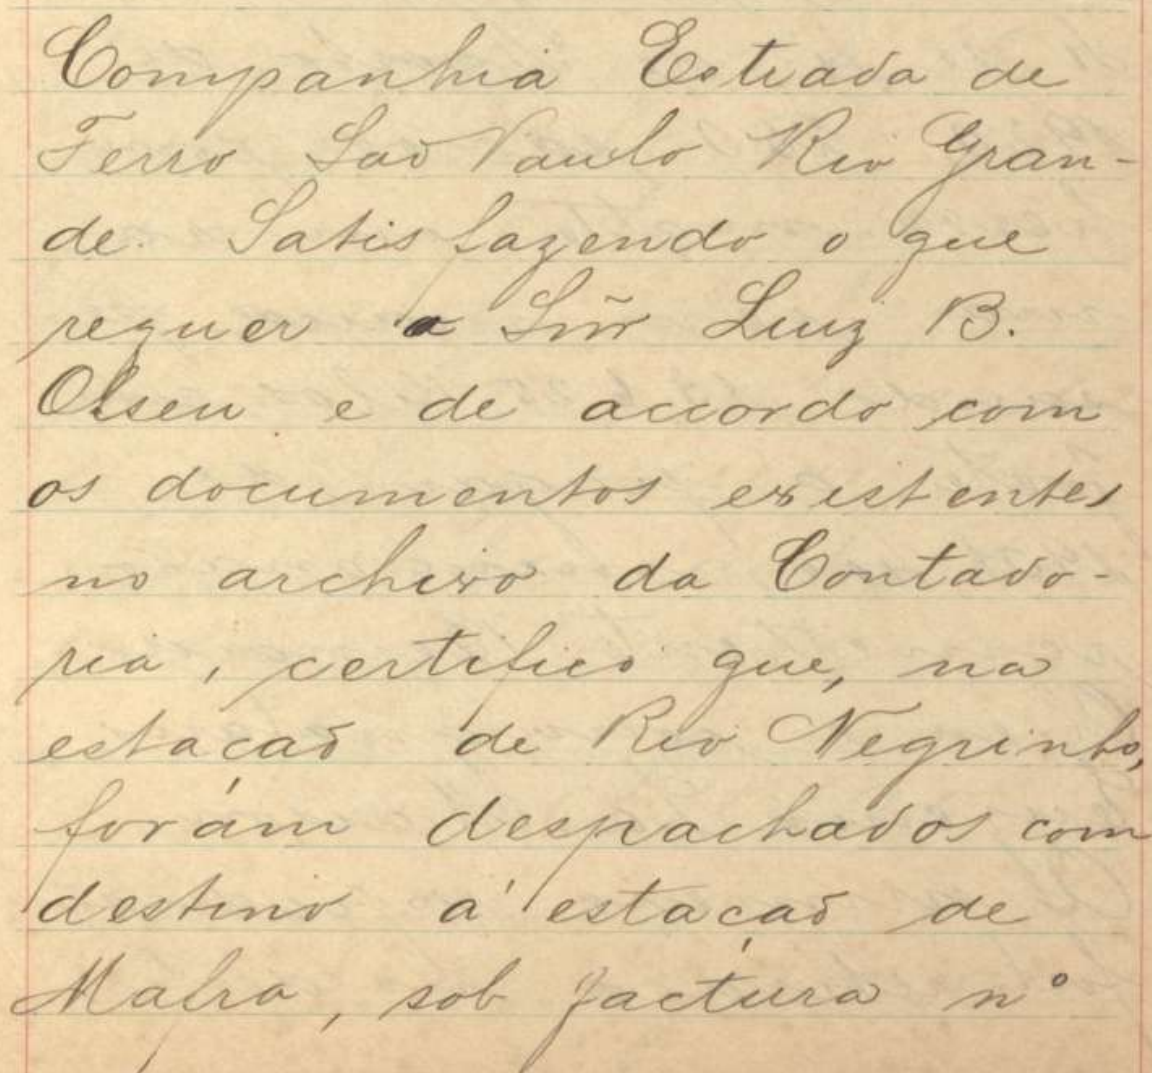 Companhia Estrada de
Ferro São Paulo Rio Gran-
de. Satisfazendo o que
requer o Sñr Luiz B.
Olsen e de accordo com
os documentos existentes
no archivo da Contado-
ria, certifico que, na
estação de Rio Negrinho,
foram despachados com
destino á estação de
Mafra, sob factura nº